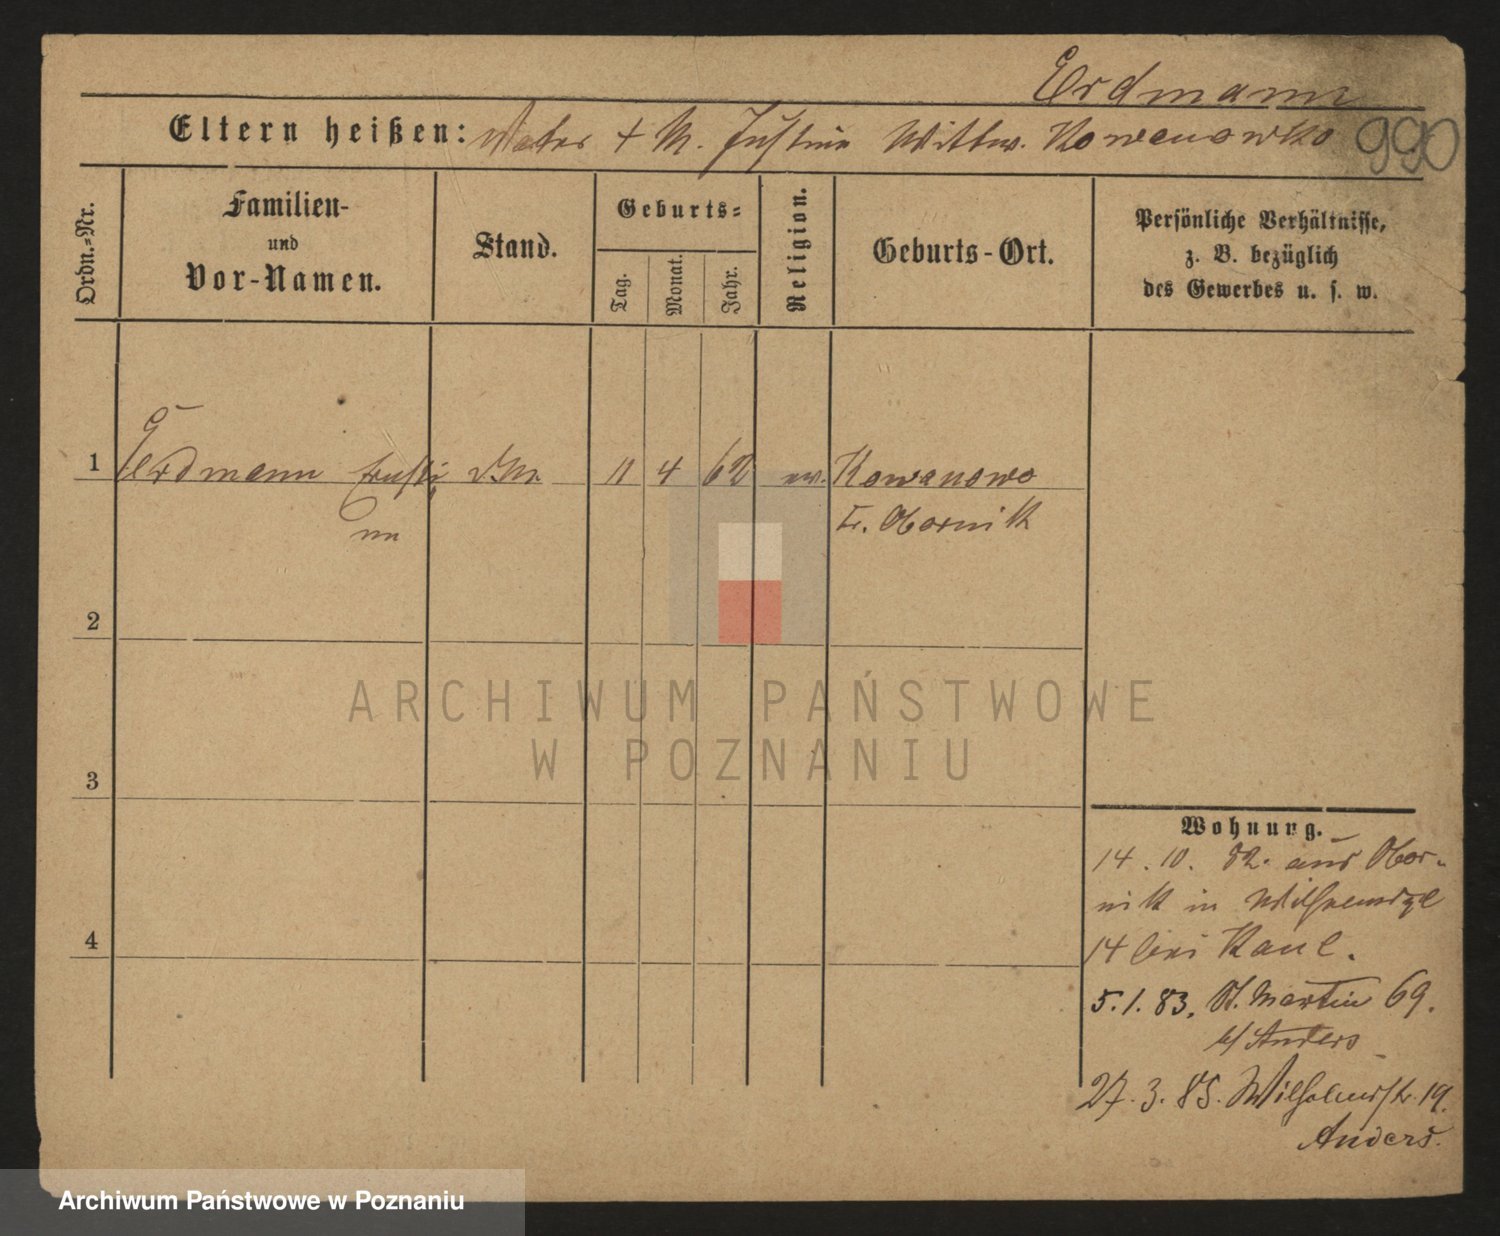 Erdmann
Eltern heißen: Vater + M. Justine Wittw. Kowanowko
990
Ordn.=Nr.
Familien-
und
Vor-Namen.
Stand.
Geburts=
Tag.
Monat.
Jahr.
Religion.
Geburts-Ort.
Persönliche Verhältnisse,
z. B. bezüglich
des Gewerbes u. s. w.
1 Erdmann Ernsti 11 4 62 ev. Kowanowo
ne
Kr. Obornik
2
3
4
Wohnung.
14. 10. 82. aus Obor-
nik in Wilhelmspl
14 bei Kaul.
5.1.83. St. Martin 69.
b/ Anders
27.3.85. Wilhelmstr. 19.
Anders.
ARCHIWUM PAŃSTWOWE
W POZNANIU
Archiwum Państwowe w Poznaniu